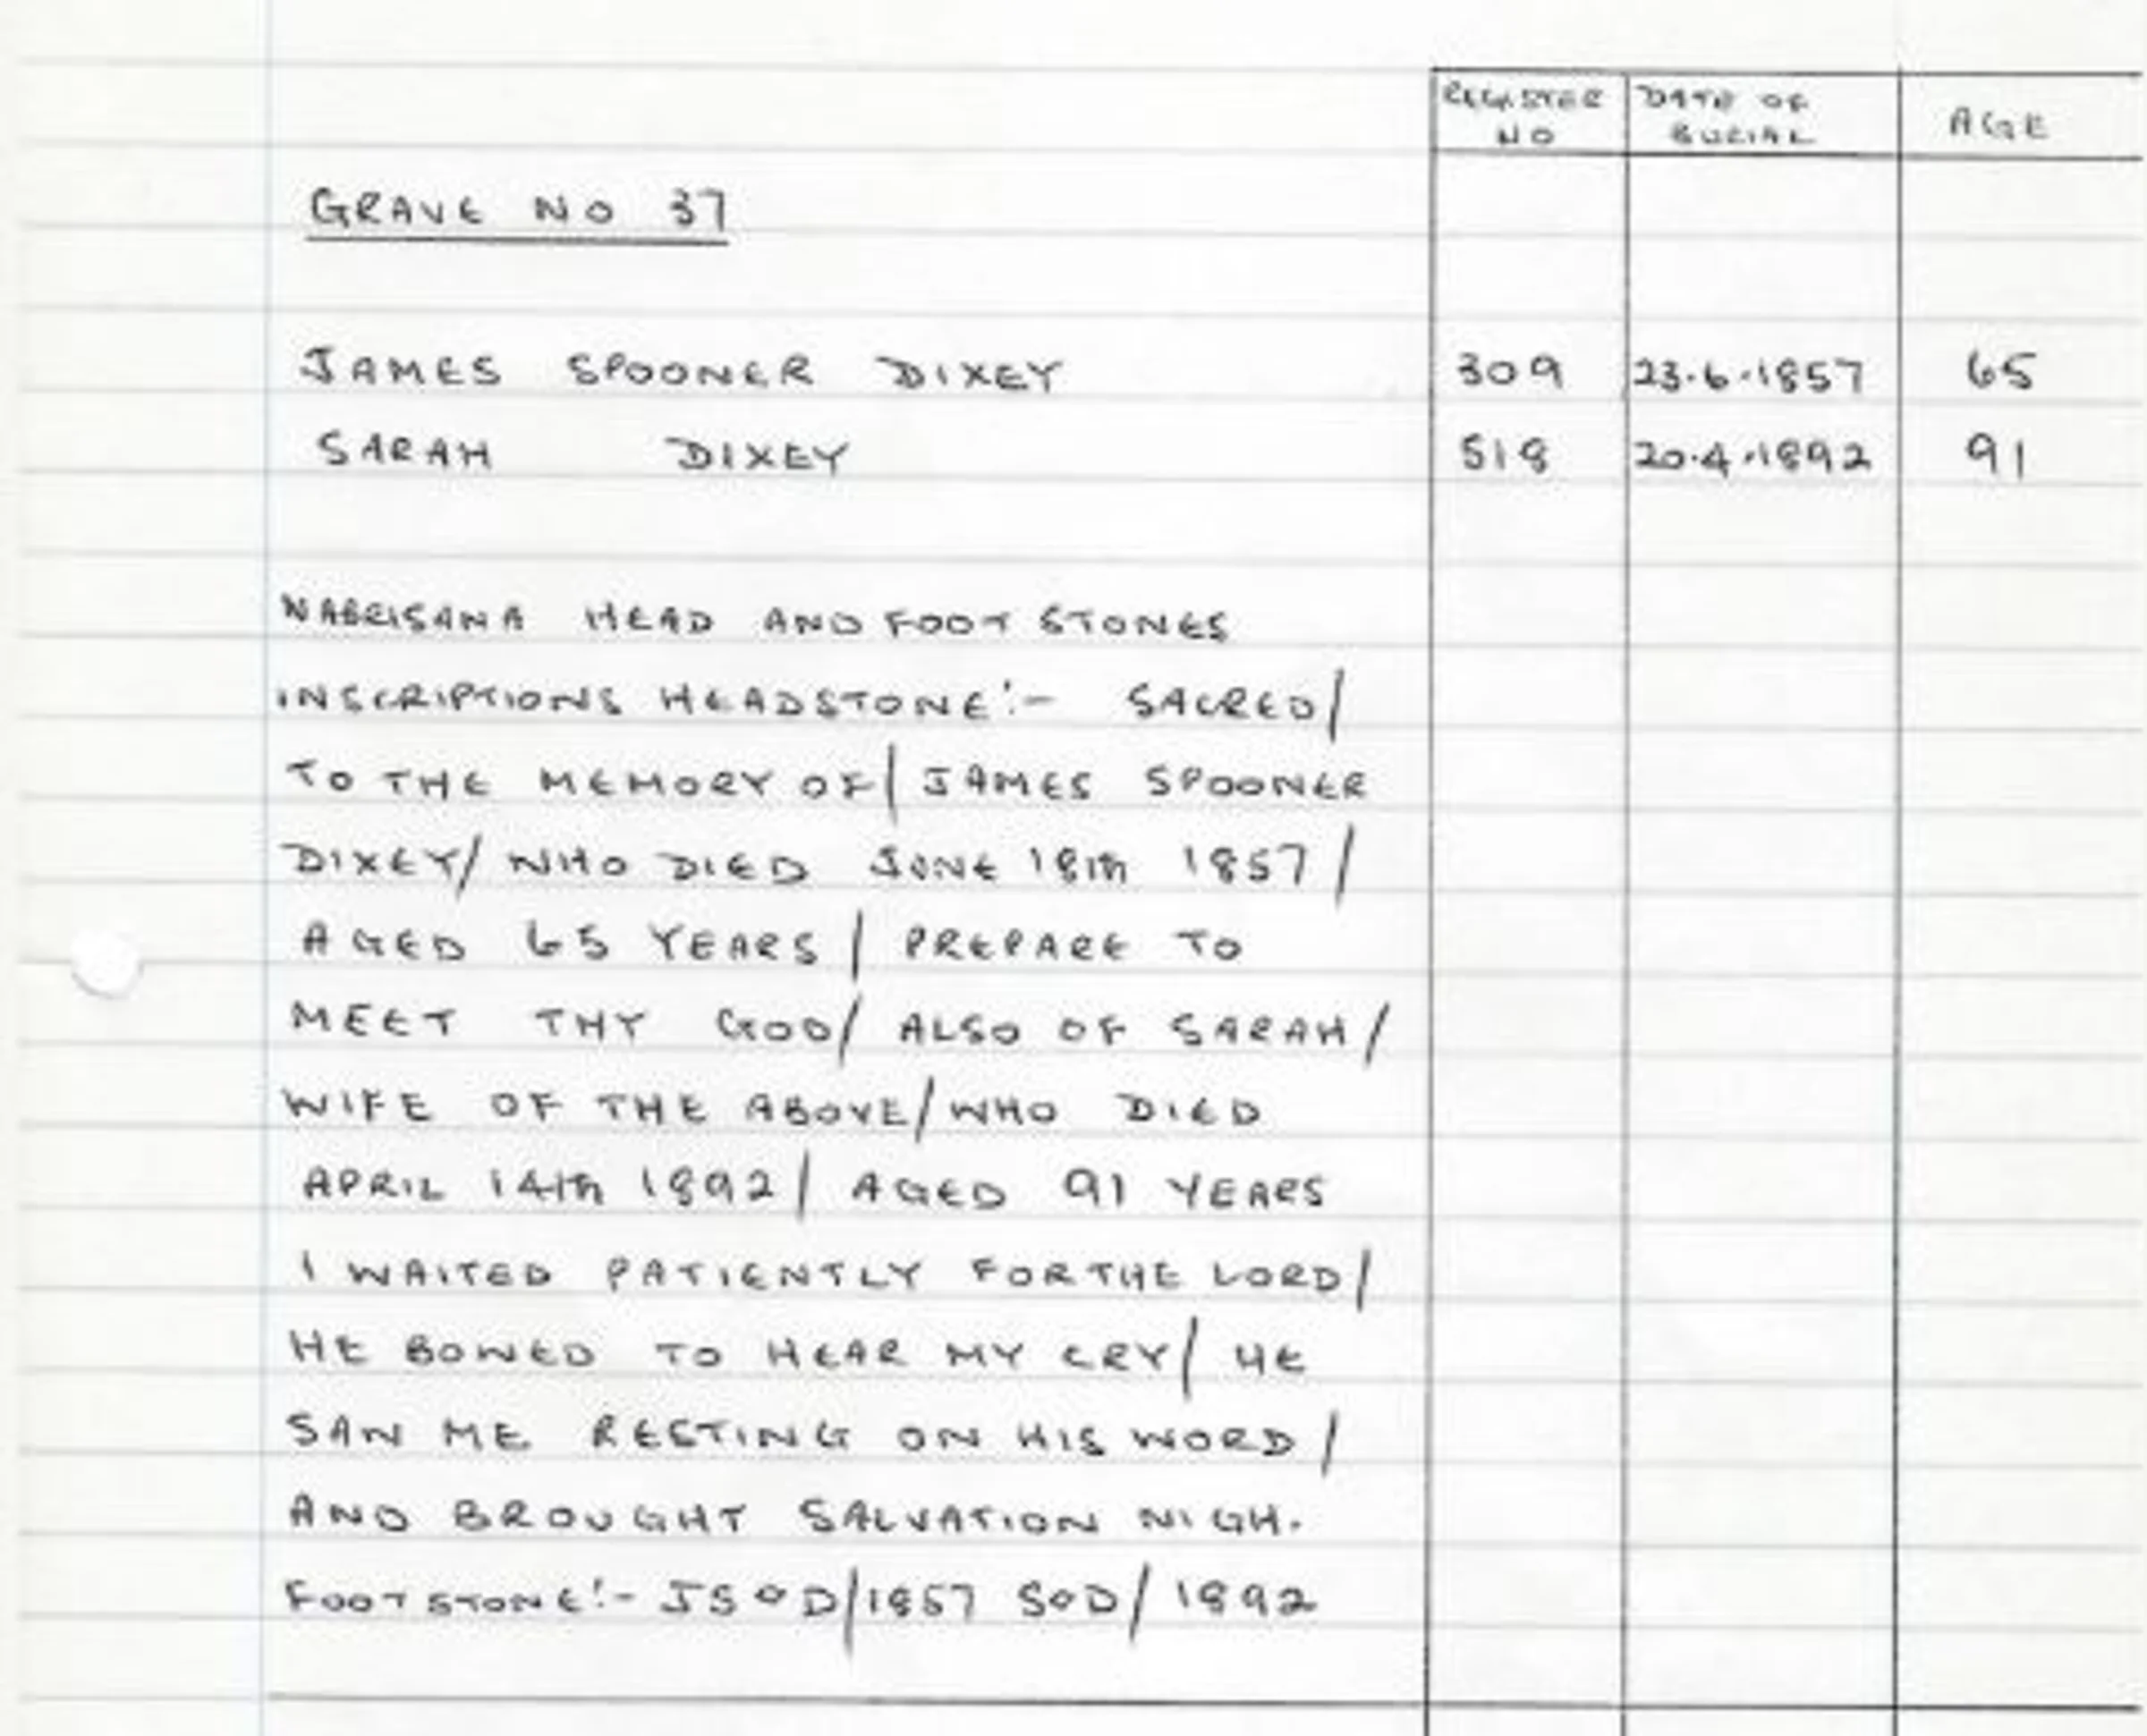 REGISTER NO DATE OF BURIAL AGE
GRAVE NO 37
JAMES SPOONER DIXEY 309 23.6.1857 65
SARAH DIXEY 518 20.4.1892 91
NABRISANA HEAD AND FOOT STONES
INSCRIPTIONS HEADSTONE:- SACRED/
TO THE MEMORY OF/ JAMES SPOONER
DIXEY/ WHO DIED JUNE 18th 1857/
AGED 65 YEARS/ PREPARE TO
MEET THY GOD/ ALSO OF SARAH/
WIFE OF THE ABOVE/ WHO DIED
APRIL 14th 1892/ AGED 91 YEARS
I WAITED PATIENTLY FOR THE LORD/
HE BOWED TO HEAR MY CRY/ HE
SAW ME RESTING ON HIS WORD/
AND BROUGHT SALVATION NIGH.
FOOT STONE:- JS◊D/1857 S◊D/ 1892